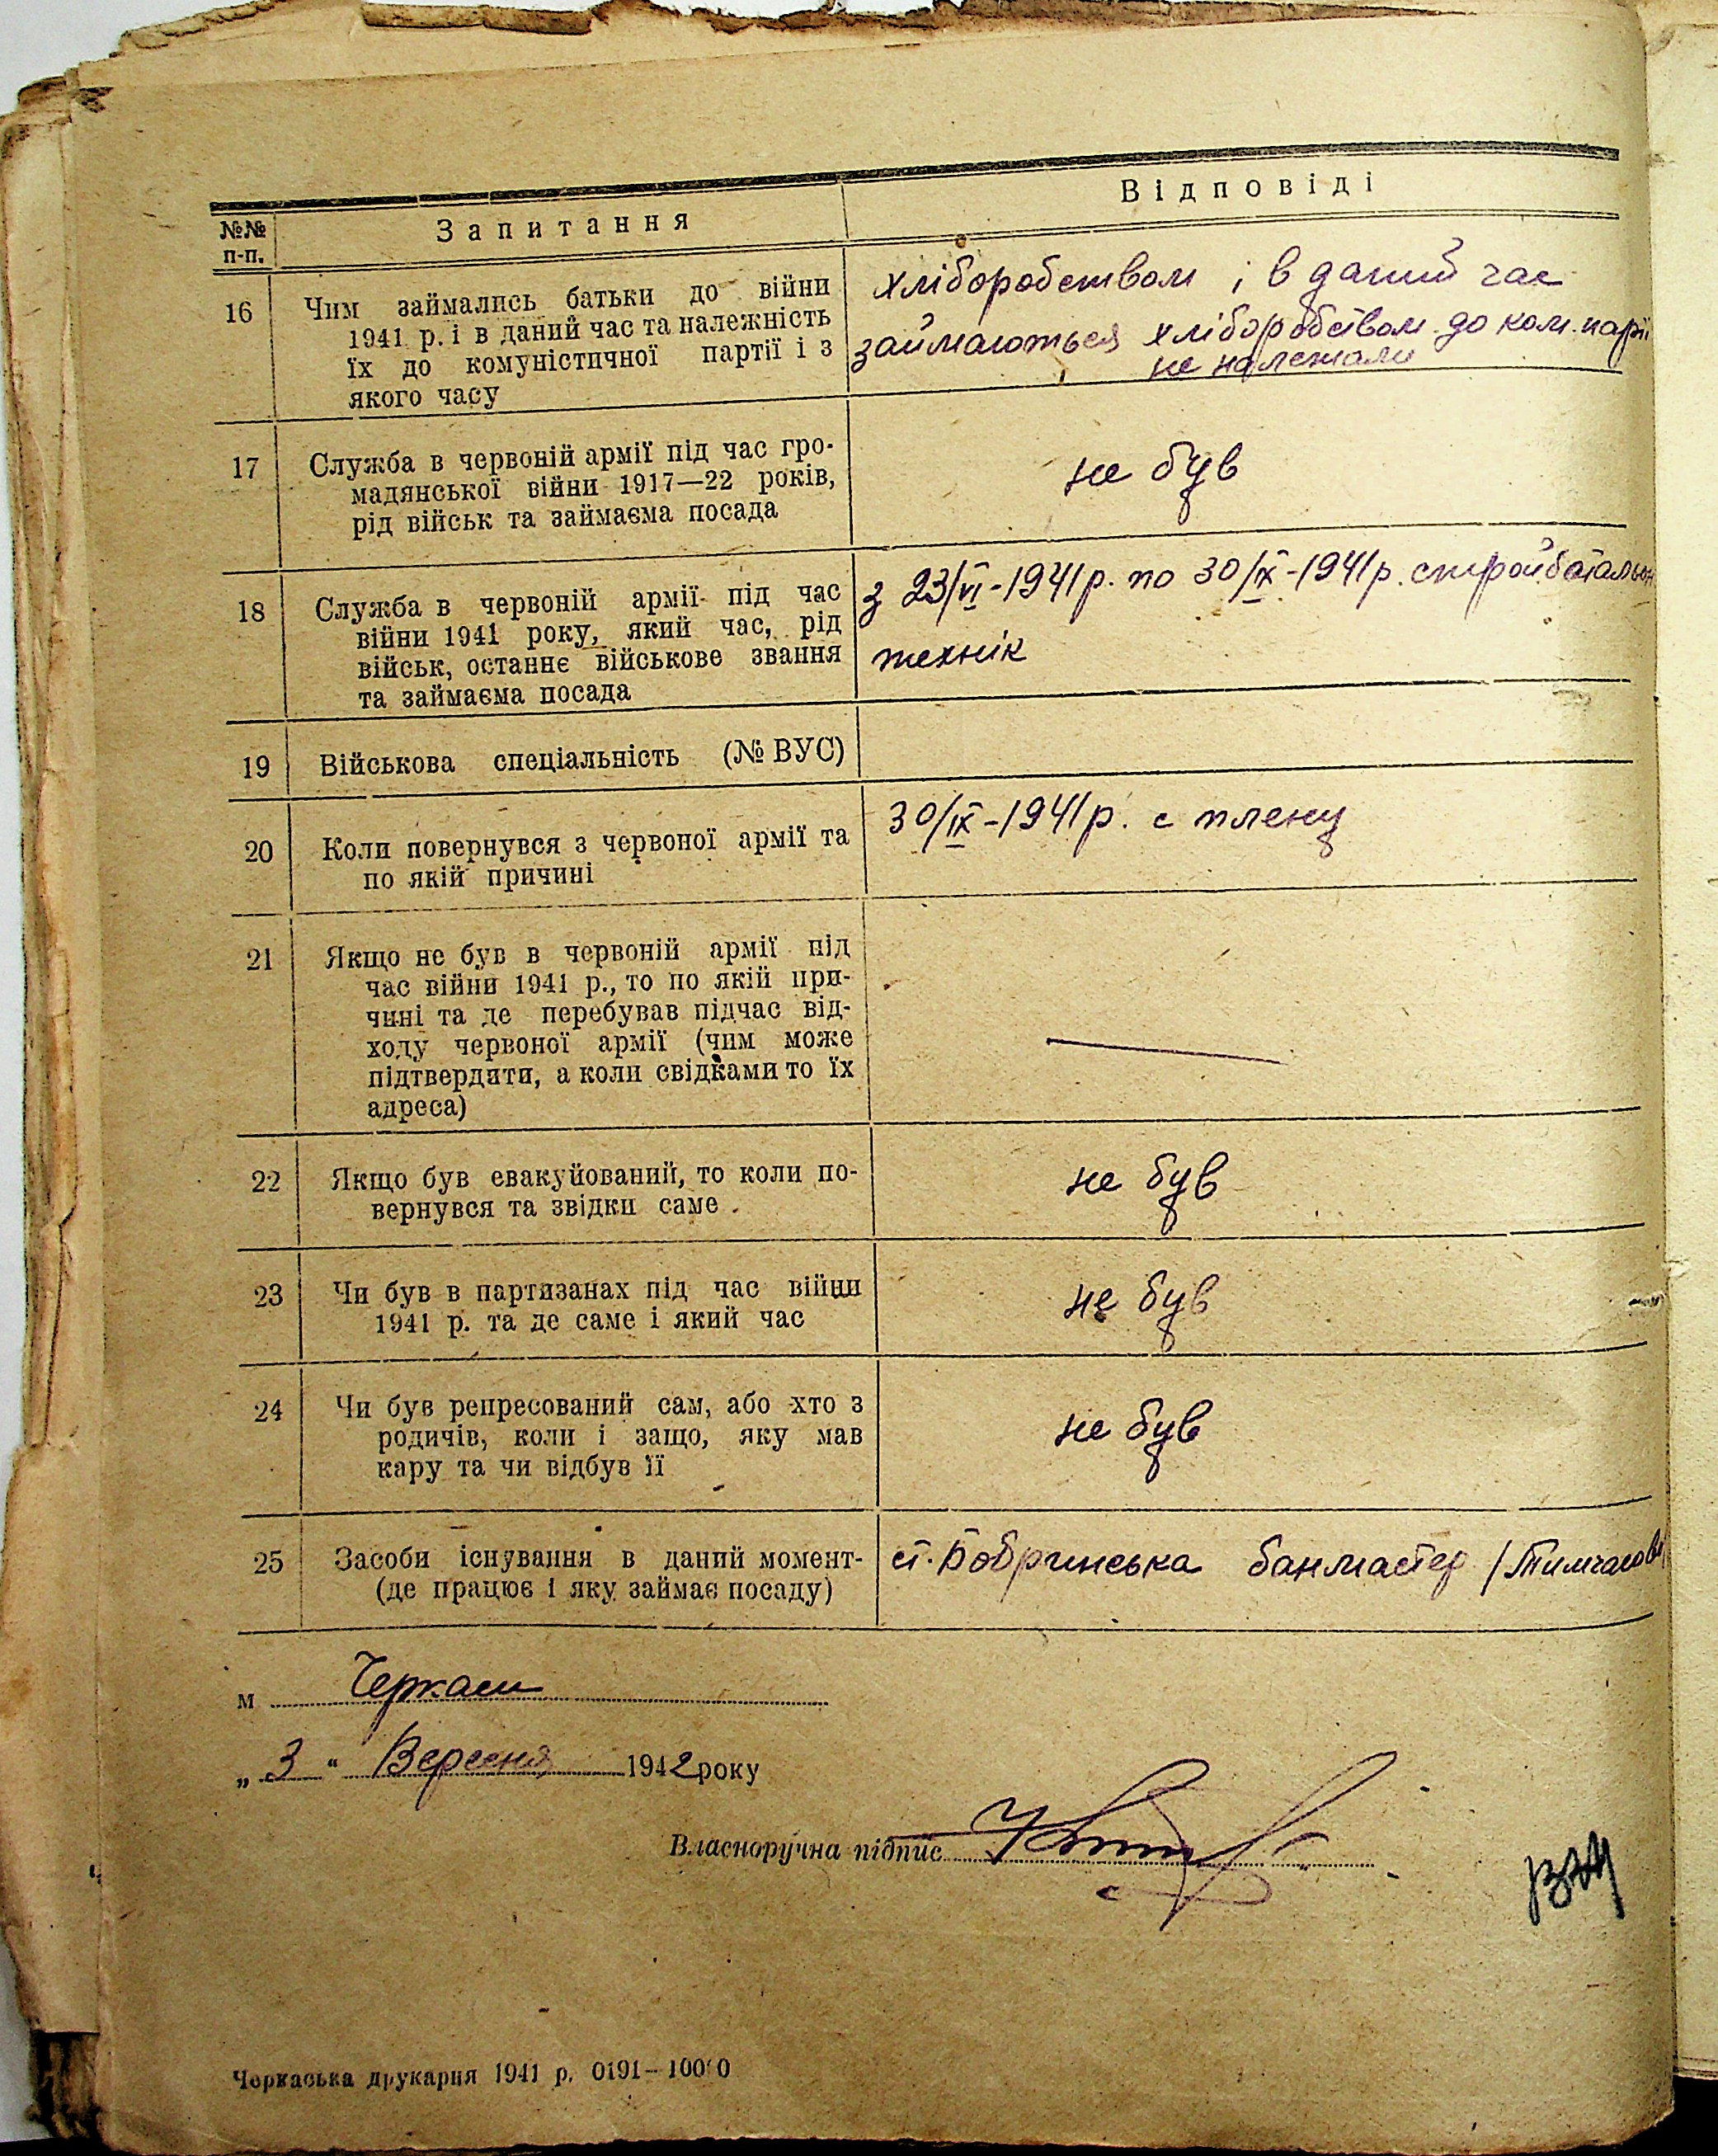 №№ п-п.
Запитання
Відповіді
16
Чим займались батьки до війни
1941 р. і в даний час та належність
їх до комуністичної партії і з
якого часу
хліборобством і в даний час
займаються хліборобством до ком. парії
не належали
17
Служба в червоній армії під час гро-
мадянської війни 1917—22 років,
рід військ та займаєма посада
не був
18
Служба в червоній армії під час
війни 1941 року, який час, рід
військ, останнє військове звання
та займаєма посада
з 23/VI-1941р. по 30/IX-1941р. стройбатальон
технік
19
Військова спеціальність (№ ВУС)
20
Коли повернувся з червоної армії та
по якій причині
30/IX-1941р. с плену
21
Якщо не був в червоній армії під
час війни 1941 р., то по якій при-
чині та де перебував підчас від-
ходу червоної армії (чим може
підтвердити, а коли свідками то їх
адреса)
22
Якщо був евакуйований, то коли по-
вернувся та звідки саме .
не був
23
Чи був в партизанах під час війни
1941 р. та де саме і який час
не був
24
Чи був репресований сам, або хто з
родичів, коли і защо, яку мав
кару та чи відбув її
не був
25
Засоби існування в даний момент-
(де працює і яку займає посаду)
ст. Бобринська банмастер /Тимчасово
м Черкаси
„ 3 “ Вересня 1942 року
Власноручна підпис
Черкаська друкарня 1941 р. 0191—10000